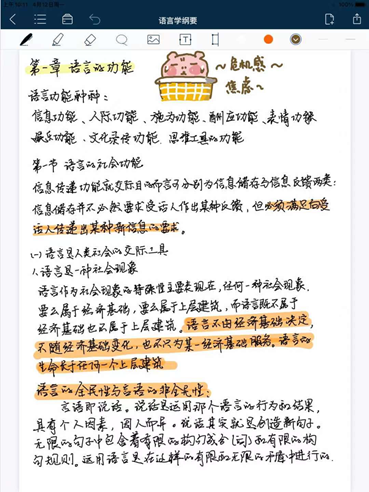 语言学纲要
第一章 语言的功能
~危机感~
焦虑~
语言功能种种:
信息功能、人际功能、施为功能、酬应功能、表情功能
娱乐功能、文化录传功能、思维工具的功能
第一节 语言的社会功能
信息传递功能就交际目的而言可分别为信息储存与信息反馈两类:
信息储存并不必然要求受话人作出某种反馈,但必须满足向受
话人传递出某种新信息的要求。
(一)语言是人类社会的交际工具
1.语言是一种社会现象
语言作为社会现象的特殊性主要表现在,任何一种社会现象.
要么属于经济基础,要么属于上层建筑,而语言既不属于
经济基础也不属于上层建筑。语言不由经济基础决定,
不随经济基础变化,也不只为某一经济基础服务,语言的
生命长于任何一个上层建筑
语言的全民性与言语的非全民性:
言语即说话。说话是运用那个语言的行为和结果,
具有个人因素,因人而异。说话其实就是创造新句子。
无限的句子中包含着有限的构句成分(词)和有限的构
句规则。运用语言是在这样的有限和无限的矛盾中进行的.